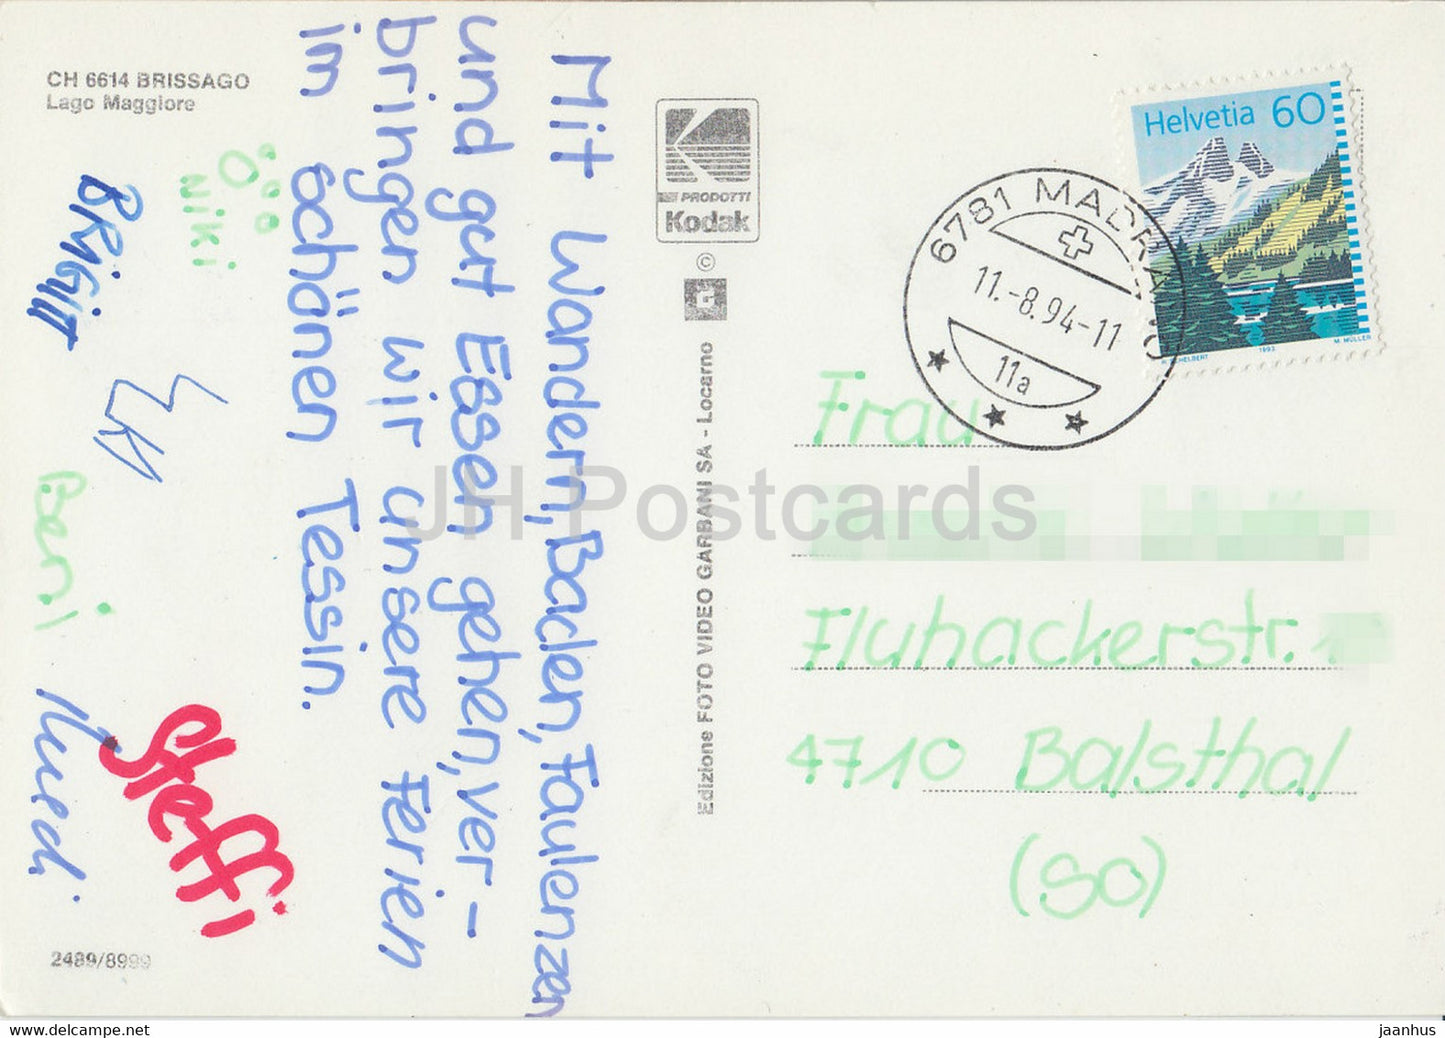 CH 6614 BRISSAGO
Lago Maggiore
Mit Wandern, Baden, Faulenzen
und gut Essen gehen, ver-
bringen wir unsere Ferien
im schönen Tessin.
Niki
BRIGITT
Beni
Ruedi
Steffi
2489/8999
PRODOTTI
Kodak
©
G
Edizione FOTO VIDEO GARBANI SA - Locarno
Helvetia 60
1993
M. MÜLLER
6781 MADRANO
11.-8.94-11
11a
Frau
Fluhackerstr.
4710 Balsthal
(SO)
JH Postcards
hippostcard.com/store/jhpostcards
jaanhus—